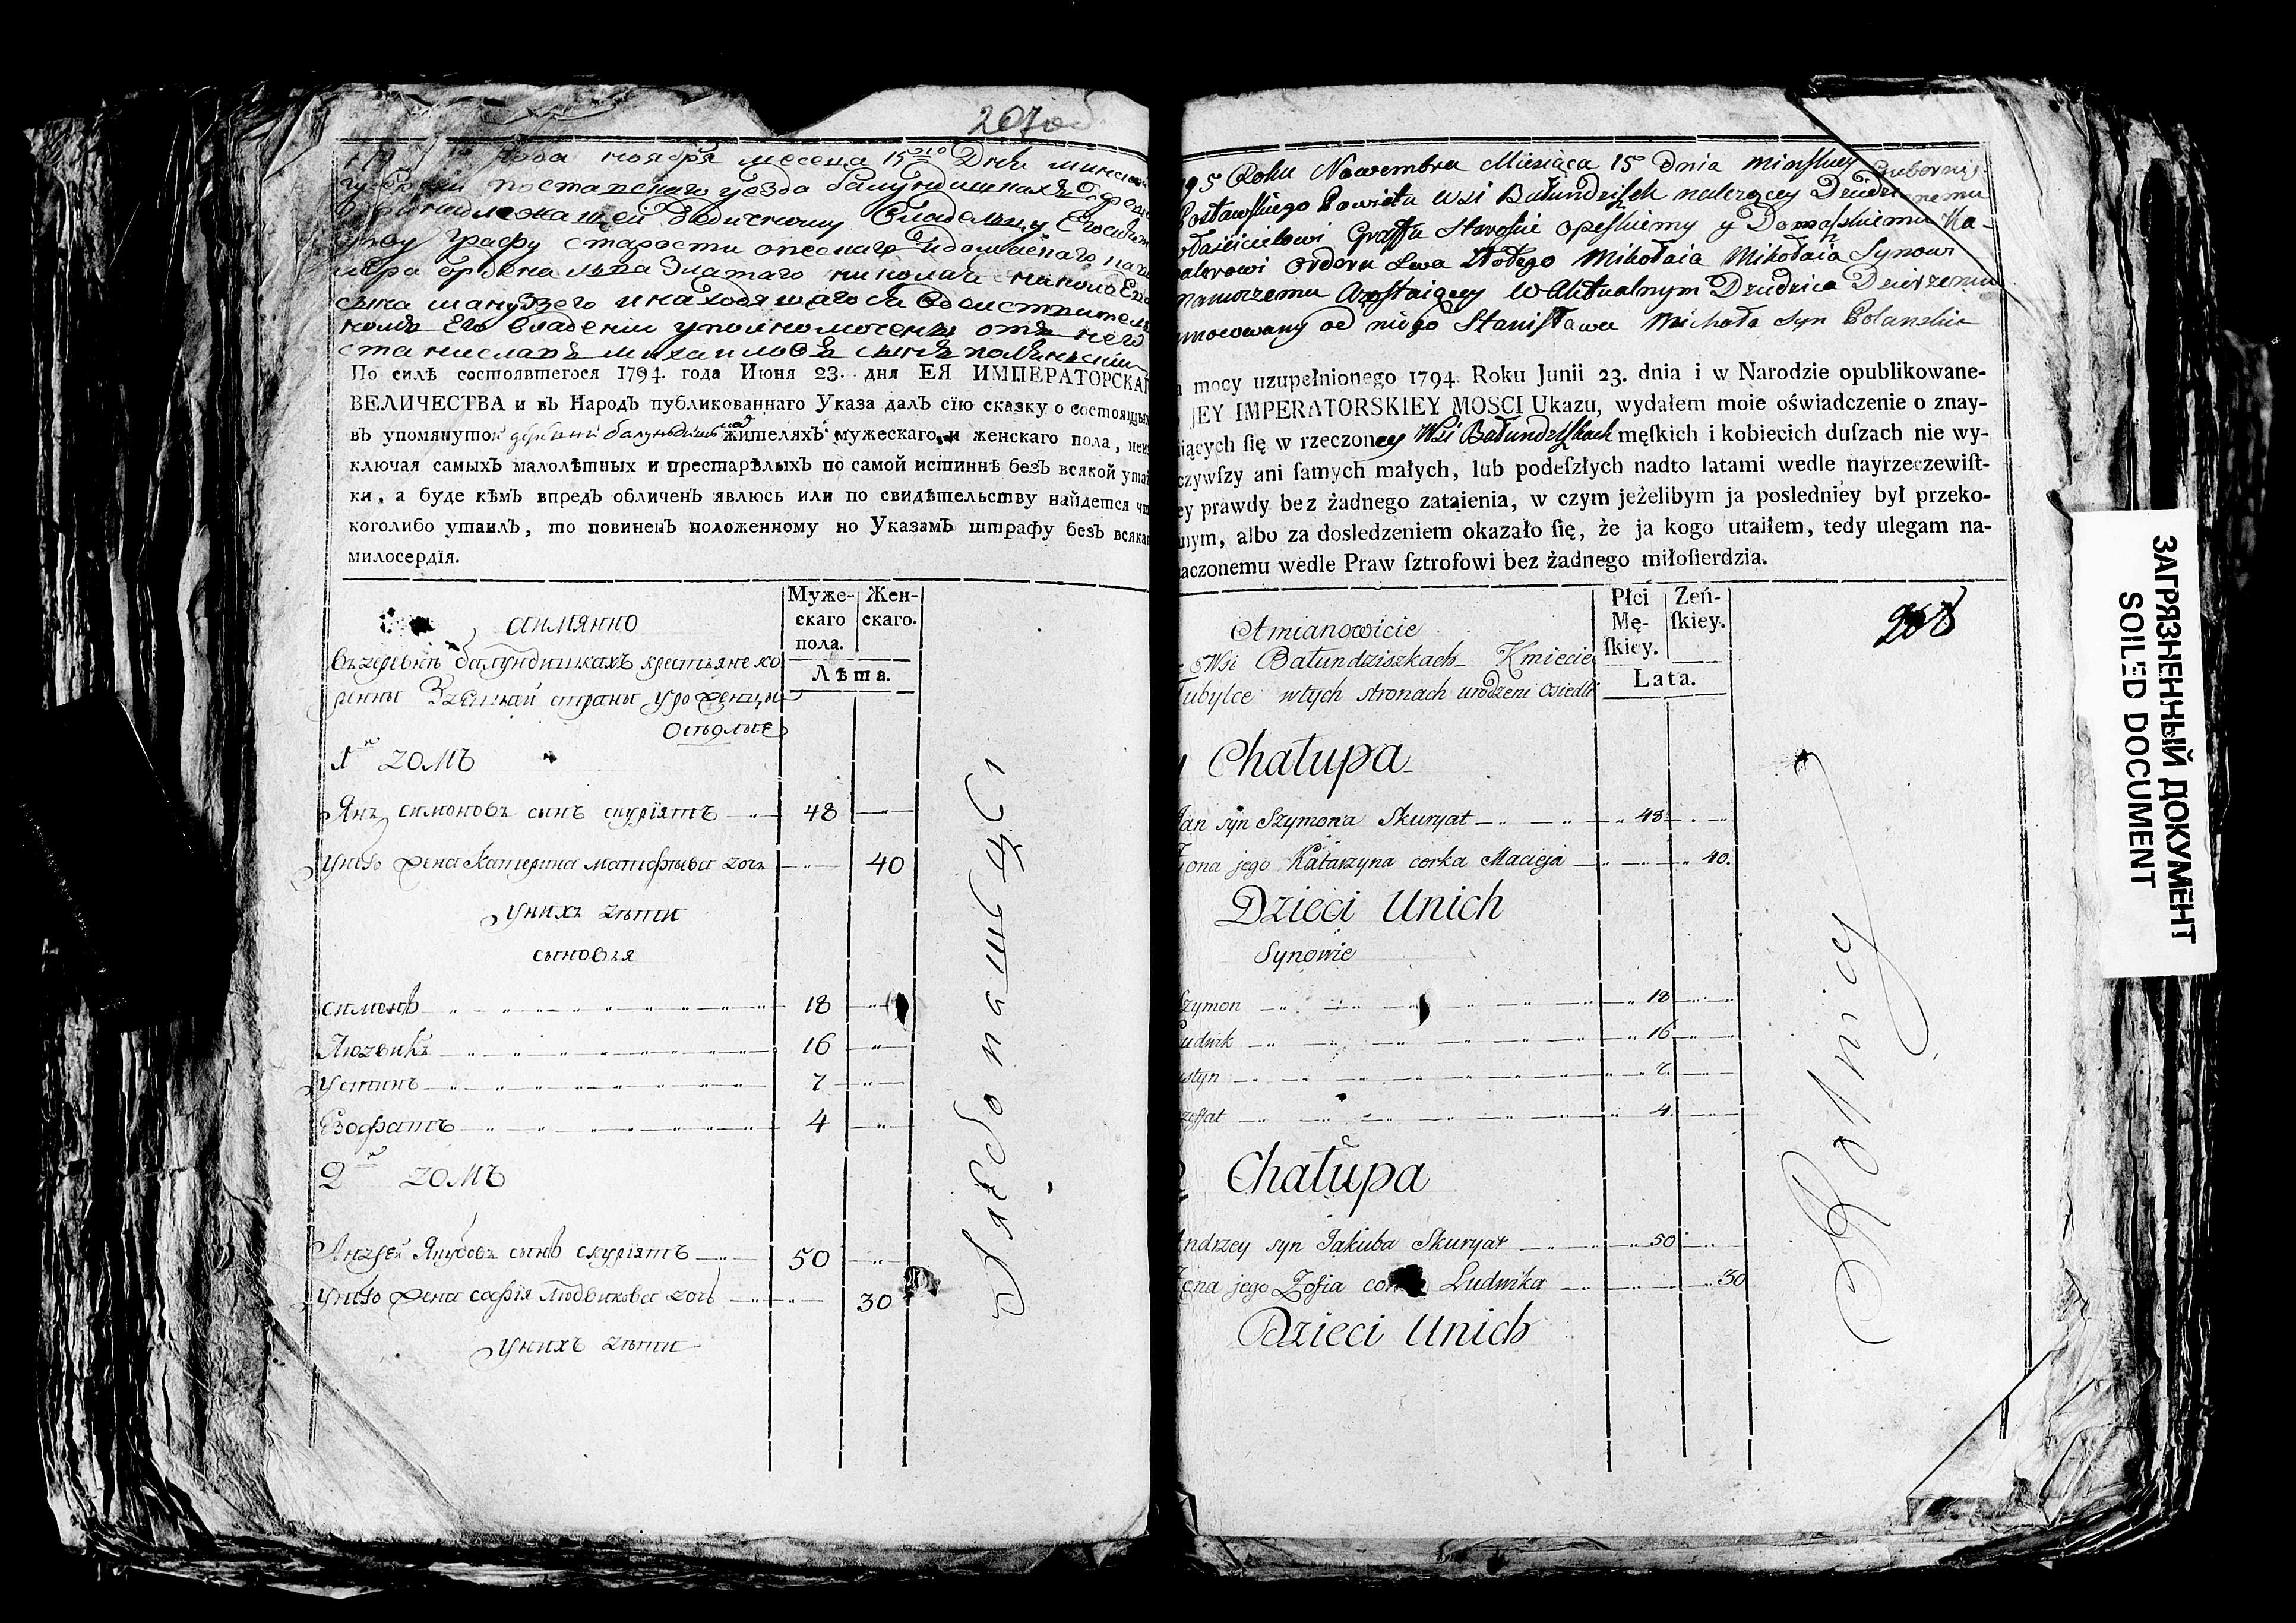 207об
года ноября месеца 15го дня минской
губернии поставскаго уезда балундишках
принадлежащей владельцу
графу старости опескаго и домаскаго
ордена льва златаго николая
сына находящагося
Его владении уполномочены отъ него
станиславъ михаиловъ сынъ полянский
По силѣ состоявшегося 1794. года Июня 23. дня ЕЯ ИМПЕРАТОРСКАГ
ВЕЛИЧЕСТВА и въ Народѣ публикованнаго Указа далъ сїю сказку о состоящих
въ упомянутой деревни балундишкахъ жителяхъ мужескаго и женскаго пола, неис
ключая самыхъ малолѣтныхъ и престарѣлыхъ по самой истиннѣ безъ всякой утаи
ки, а буде кѣмъ впредь обличенъ явлюсь или по свидѣтельству найдется что
коголибо утаилъ, то повиненъ положенному по Указамъ штрафу безъ всякаг
милосердїя.
Муже-
скаго
пола.
Жен-
скаго.
Лѣта.
а имянно
въ деревнѣ балундишкахъ крестьяне ко
ренны здешней страны уроженцы
оседлые
1й домъ
Янъ симоновъ сынъ скурїятъ 48
у него жена Катерина матфѣева дочь 40
у нихъ дѣти
сыновья
симонъ 18
Людвикъ 16
устинъ 7
Езофатъ 4
2й домъ
Андрей Якубовъ сынъ скурїятъ 50
у него жена софїя Людвикова дочь 30
у нихъ дѣти
95 Roku Nowembra Miesiąca 15 dnia Minskiey Gubernij
Postawskiego Powiatu wsi Bałundziszek należącey Dziedzicznemu
Graffu Staroście opeskiemu y Domaskiemu Ka-
walerowi orderu Lwa Złotego Mikołaia Mikołaia Synowi
w Aktualnym Dziedzica Dzierżeniu
umocowany od niego Stanisława Michała syn Polanskie
mocy uzupełnionego 1794. Roku Junii 23. dnia i w Narodzie opublikowane-
JEY IMPERATORSKIEY MOSCI Ukazu, wydałem moie oświadczenie o znay-
iących się w rzeczoney Wsi Bałundziszkach męskich i kobiecich duszach nie wy-
czywszy ani samych małych, lub podeszłych nadto latami wedle nayrzeczewist-
ey prawdy bez żadnego zataienia, w czym jeżelibym ja posledniey był przeko-
nym, albo za dosledzeniem okazało się, że ja kogo utaiłem, tedy ulegam na-
aczonemu wedle Praw sztrofowi bez żadnego miłosierdzia.
Płci
Mę-
skiey.
Zeń-
skiey.
Lata.
208
Amianowicie
Wsi Bałundziszkach Kmiecie
Tubylce w tych stronach urodzeni osiedli
1 Chałupa
Jan syn Szymona Skuryat 48
Żona jego Katarzyna corka Macieja 40.
Dzieci Unich
Synowie
Szymon 18
Ludwik 16
ustyn 7.
zeffat 4
2 Chałupa
Andrzey syn Jakuba Skuryat 50
Żona jego Zofia corka Ludwika 30
Dzieci Unich
ЗАГРЯЗНЕННЫЙ ДОКУМЕНТ
SOILED DOCUMENT